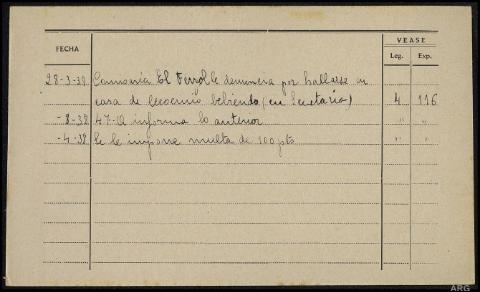 VEASE
FECHA Leg. Exp.
28-3-38 Comisaría El Ferrol le denuncia por hallarse en
casa de lecocinio bebiendo (en Secretaria) 4 116
-8-38 47-12 informa lo anterior " "
-4-38 Se le impone multa de 100 pts " "
ARG